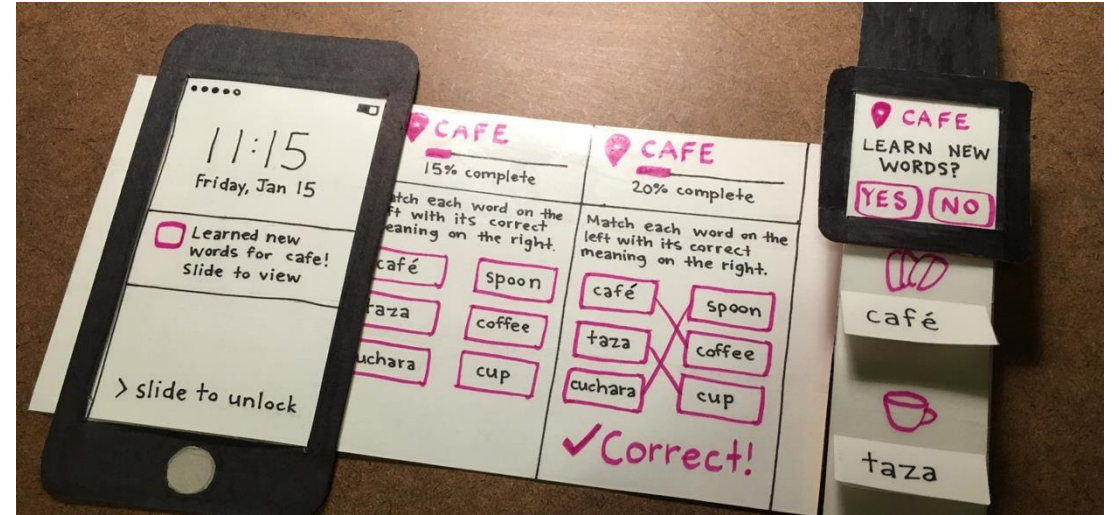 11:15
Friday, Jan 15
Learned new
words for cafe!
Slide to view
> slide to unlock
CAFE
15% complete
each word on the
with its correct
meaning on the right.
café
spoon
coffee
cup
CAFE
20% complete
Match each word on the
left with its correct
meaning on the right.
café
spoon
taza
coffee
cuchara
cup
✓Correct!
CAFE
LEARN NEW
WORDS?
YES NO
café
taza